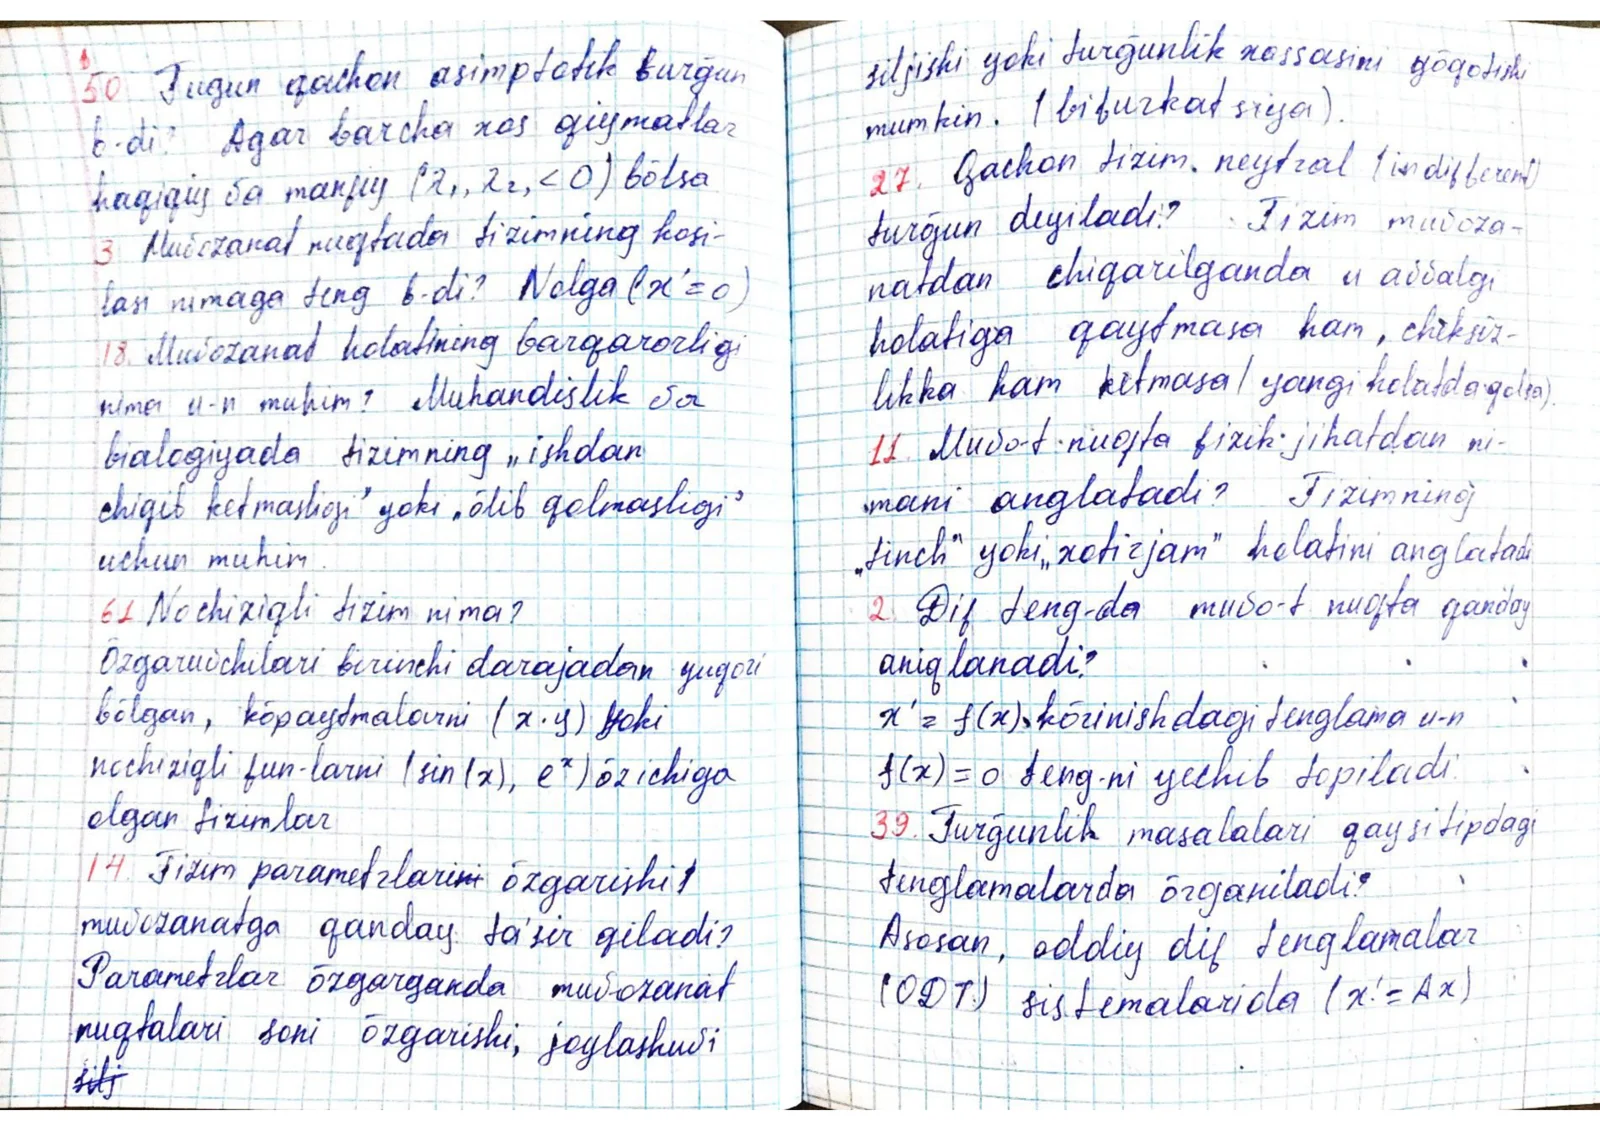 50 Tugun qachon asimptotik turg'un
b-di? Agar barcha xos qiymatlar
haqiqiy va manfiy (λ₁, λ₂, < 0) bo'lsa
3 Muvozanat nuqtada tizimning hosi-
lasi nimaga teng b-di? Nolga (x' = 0)
18. Muvozanat holatining barqarorligi
nima u-n muhim? Muhandislik va
bialogiyada tizimning „ishdan
chiqib ketmasligi” yoki „o'lib qolmasligi”
uchun muhim.
61 Nochiziqli tizim nima?
O'zgaruvchilari birinchi darajadan yuqori
bo'lgan, ko'paytmalarni (x·y) yoki
nochiziqli fun-larni (sin(x), eˣ) o'z ichiga
olgan tizimlar
14. Tizim parametrlarini o'zgarishi
muvozanatga qanday ta'sir qiladi?
Parametrlar o'zgarganda muvozanat
nuqtalari soni o'zgarishi, joylashuvi
silj
siljishi yoki turg'unlik xossasini yo'qotishi
mumkin. (bifurkatsiya).
27. Qachon tizim neytral (indifferent)
turg'un deyiladi? Tizim muvoza-
natdan chiqarilganda u avvalgi
holatiga qaytmasa ham, cheksiz-
likka ham ketmasa (yangi holatda qolsa).
11. Muvo-t nuqta fizik jihatdan ni-
mani anglatadi? Tizimning
„tinch” yoki „xotirjam” holatini anglatadi
2. Dif teng-da muvo-t nuqta qanday
aniqlanadi?
x' = f(x) ko'rinishdagi tenglama u-n
f(x) = 0 teng-ni yechib topiladi.
39. Turg'unlik masalalari qaysi tipdagi
tenglamalarda o'rganiladi?
Asosan, oddiy dif tenglamalar
(ODT) sistemalarida (x' = Ax)